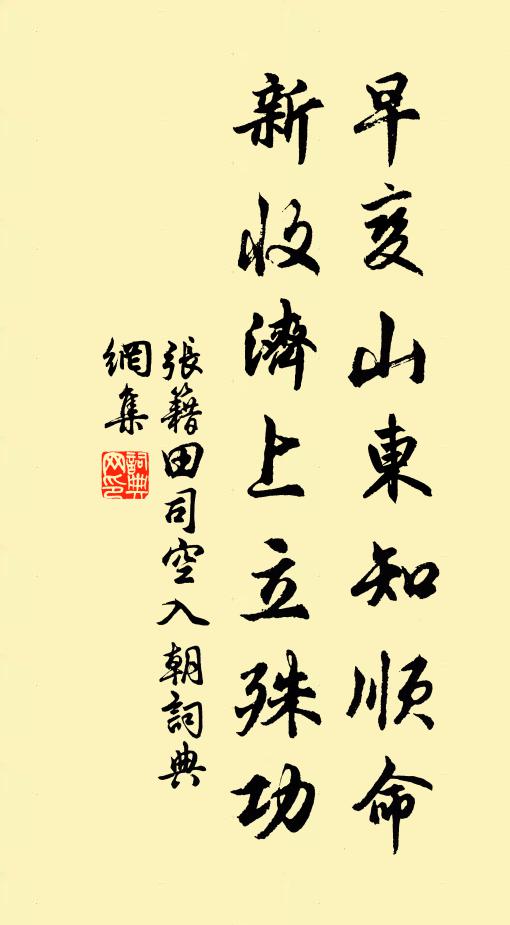 早变山東知順命
新收濟上立殊功
張籍田司空入朝詞典
網集
詞典网印